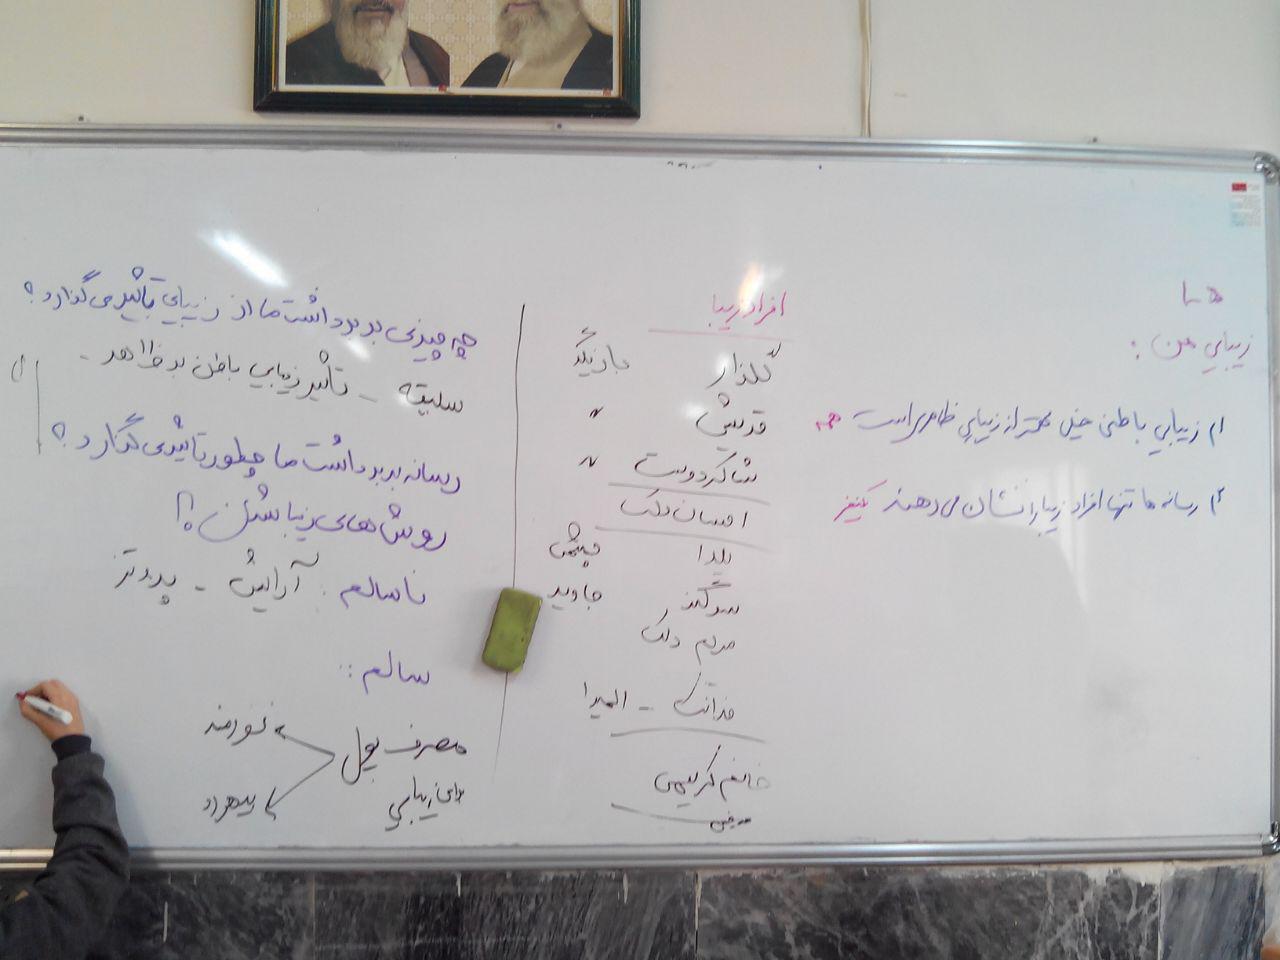 زیبایی من :
۱) زیبایی باطنی خیلی مهمتر از زیبایی ظاهری است
۲) رسانه ها تنها افراد زیبا را نشان می دهند
افراد زیبا
گلزار بازیگر
قدیمی "
شاکردوست "
احسان دلک
یلدا چیتمی
سوگند جاوید
مریم دلک
فرانک - المیرا
خانم کریمی
چه چیزی بر برداشت ما از زیبایی تأثیر می گذارد؟
سلیقه - تأثیر زیبایی باطن بر ظاهر -
رسانه بر برداشت ما چطور تاثیر می گذارد؟
روش های زیبا شدن ؟!
ناسالم : آرایش - پروتز
سالم :
مصرف پول
برای زیبایی